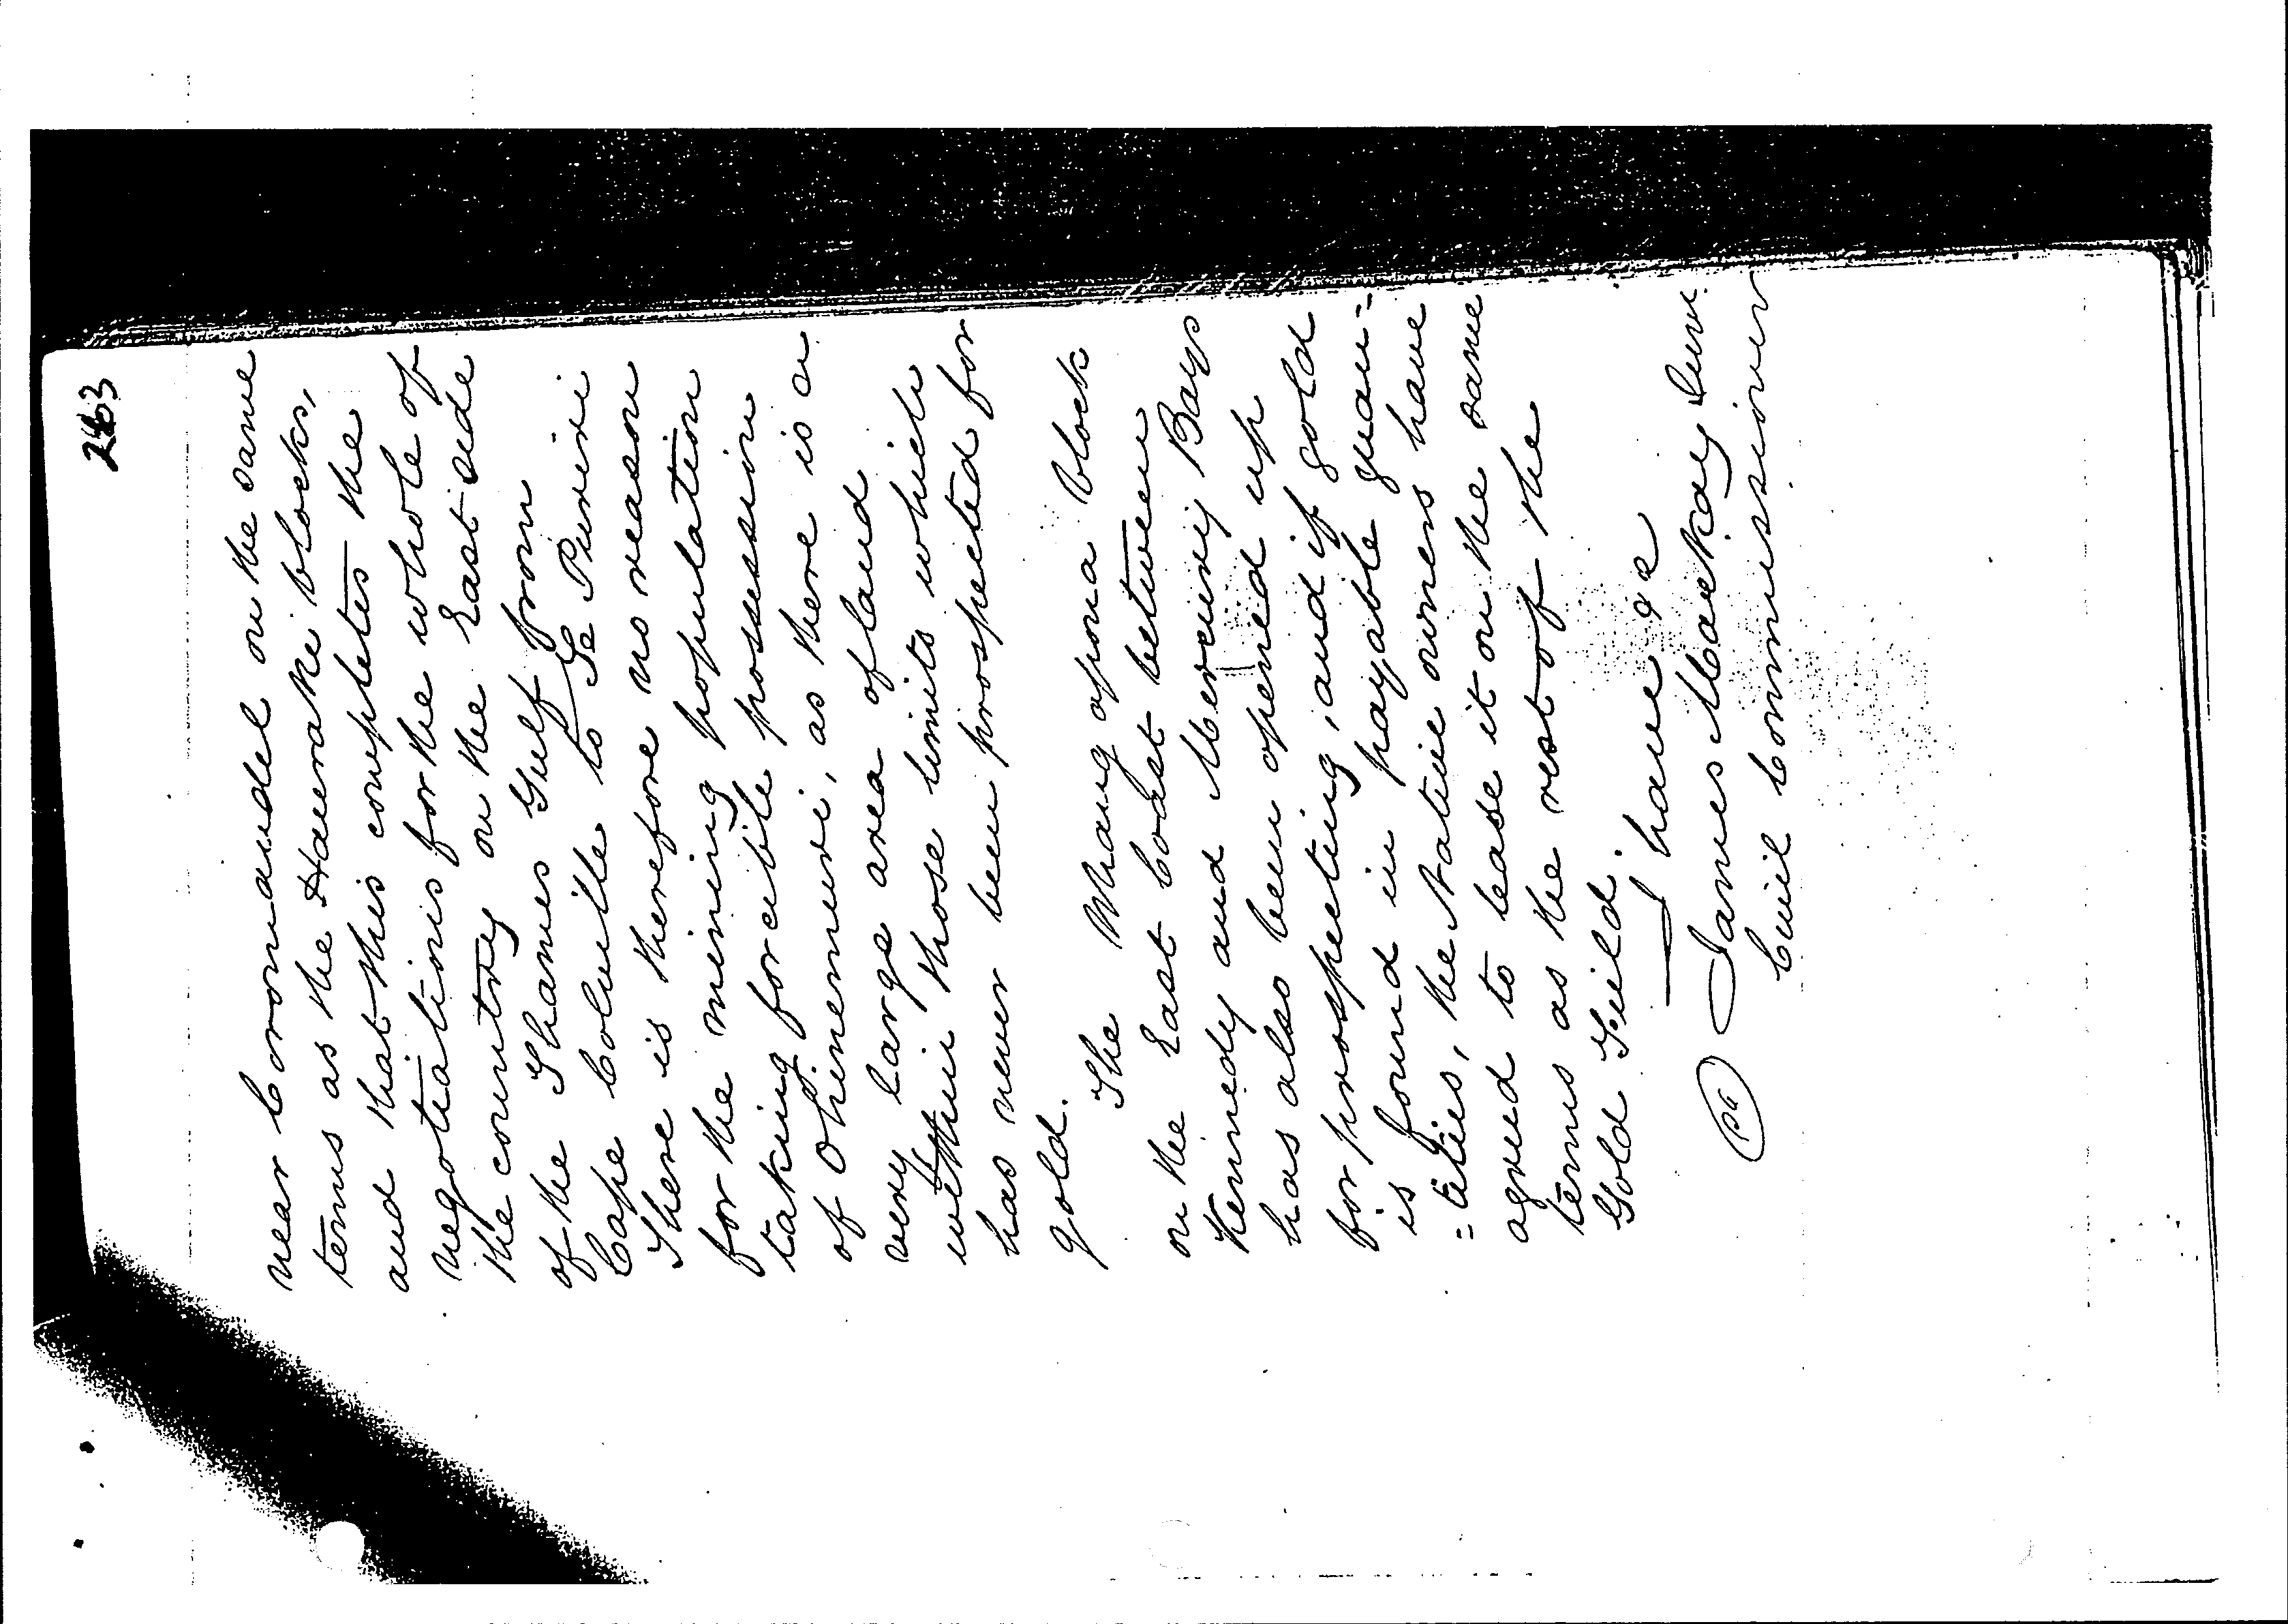 263
near Coromandel on the same
terms as the Hauraki blocks,
and that this completes the
negotiations for the whole of
the country on the East side
of the Thames Gulf from
Cape Colville to Te Puriri
There is therefore no reason
for the mining population
taking forcible possession
of Ohinemuri, as there is a
very large area of land
within those limits which
has never been prospected for
gold.
The Whangapoua block
on the East Coast between
Kennedy and Mercury Bays
has also been opened up
for prospecting, and if gold
is found in payable quan=
=tities, the Native owners have
agreed to lease it on the same
terms as the rest of the
Gold Field.
I have &c
James Mackay Junr
Civil Commissioner